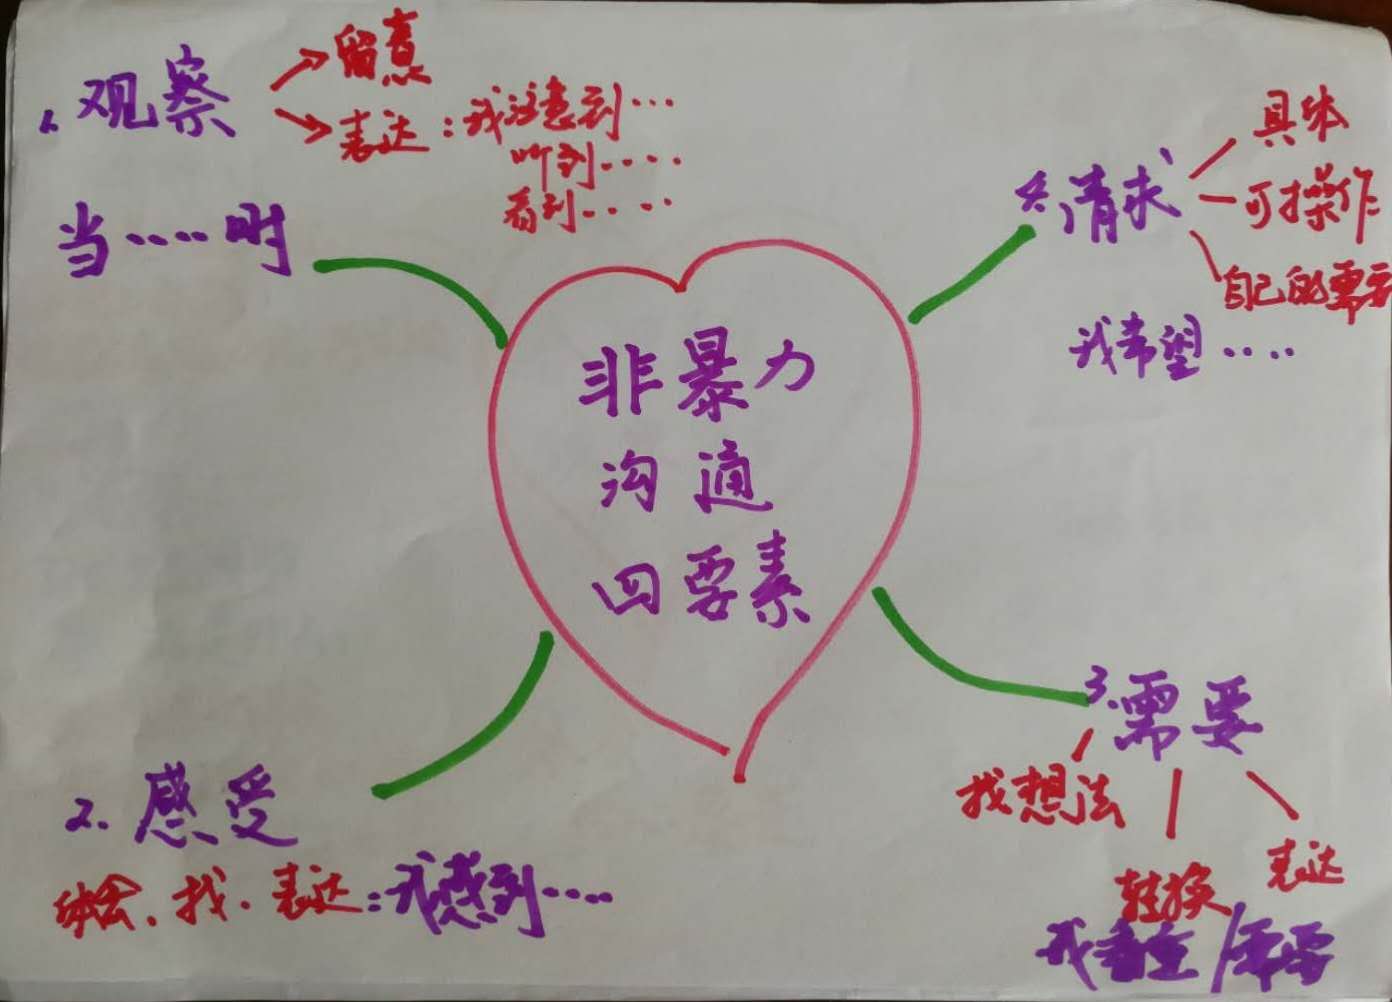 非暴力
沟通
四要素
1.观察
留意
表达:我注意到…
听到....
看到.....
当.....时
2.感受
体会、找、表达:我感到....
3.需要
找想法
转换
表达
我看重/需要
4.请求
具体
可操作
自己的需要
我希望....